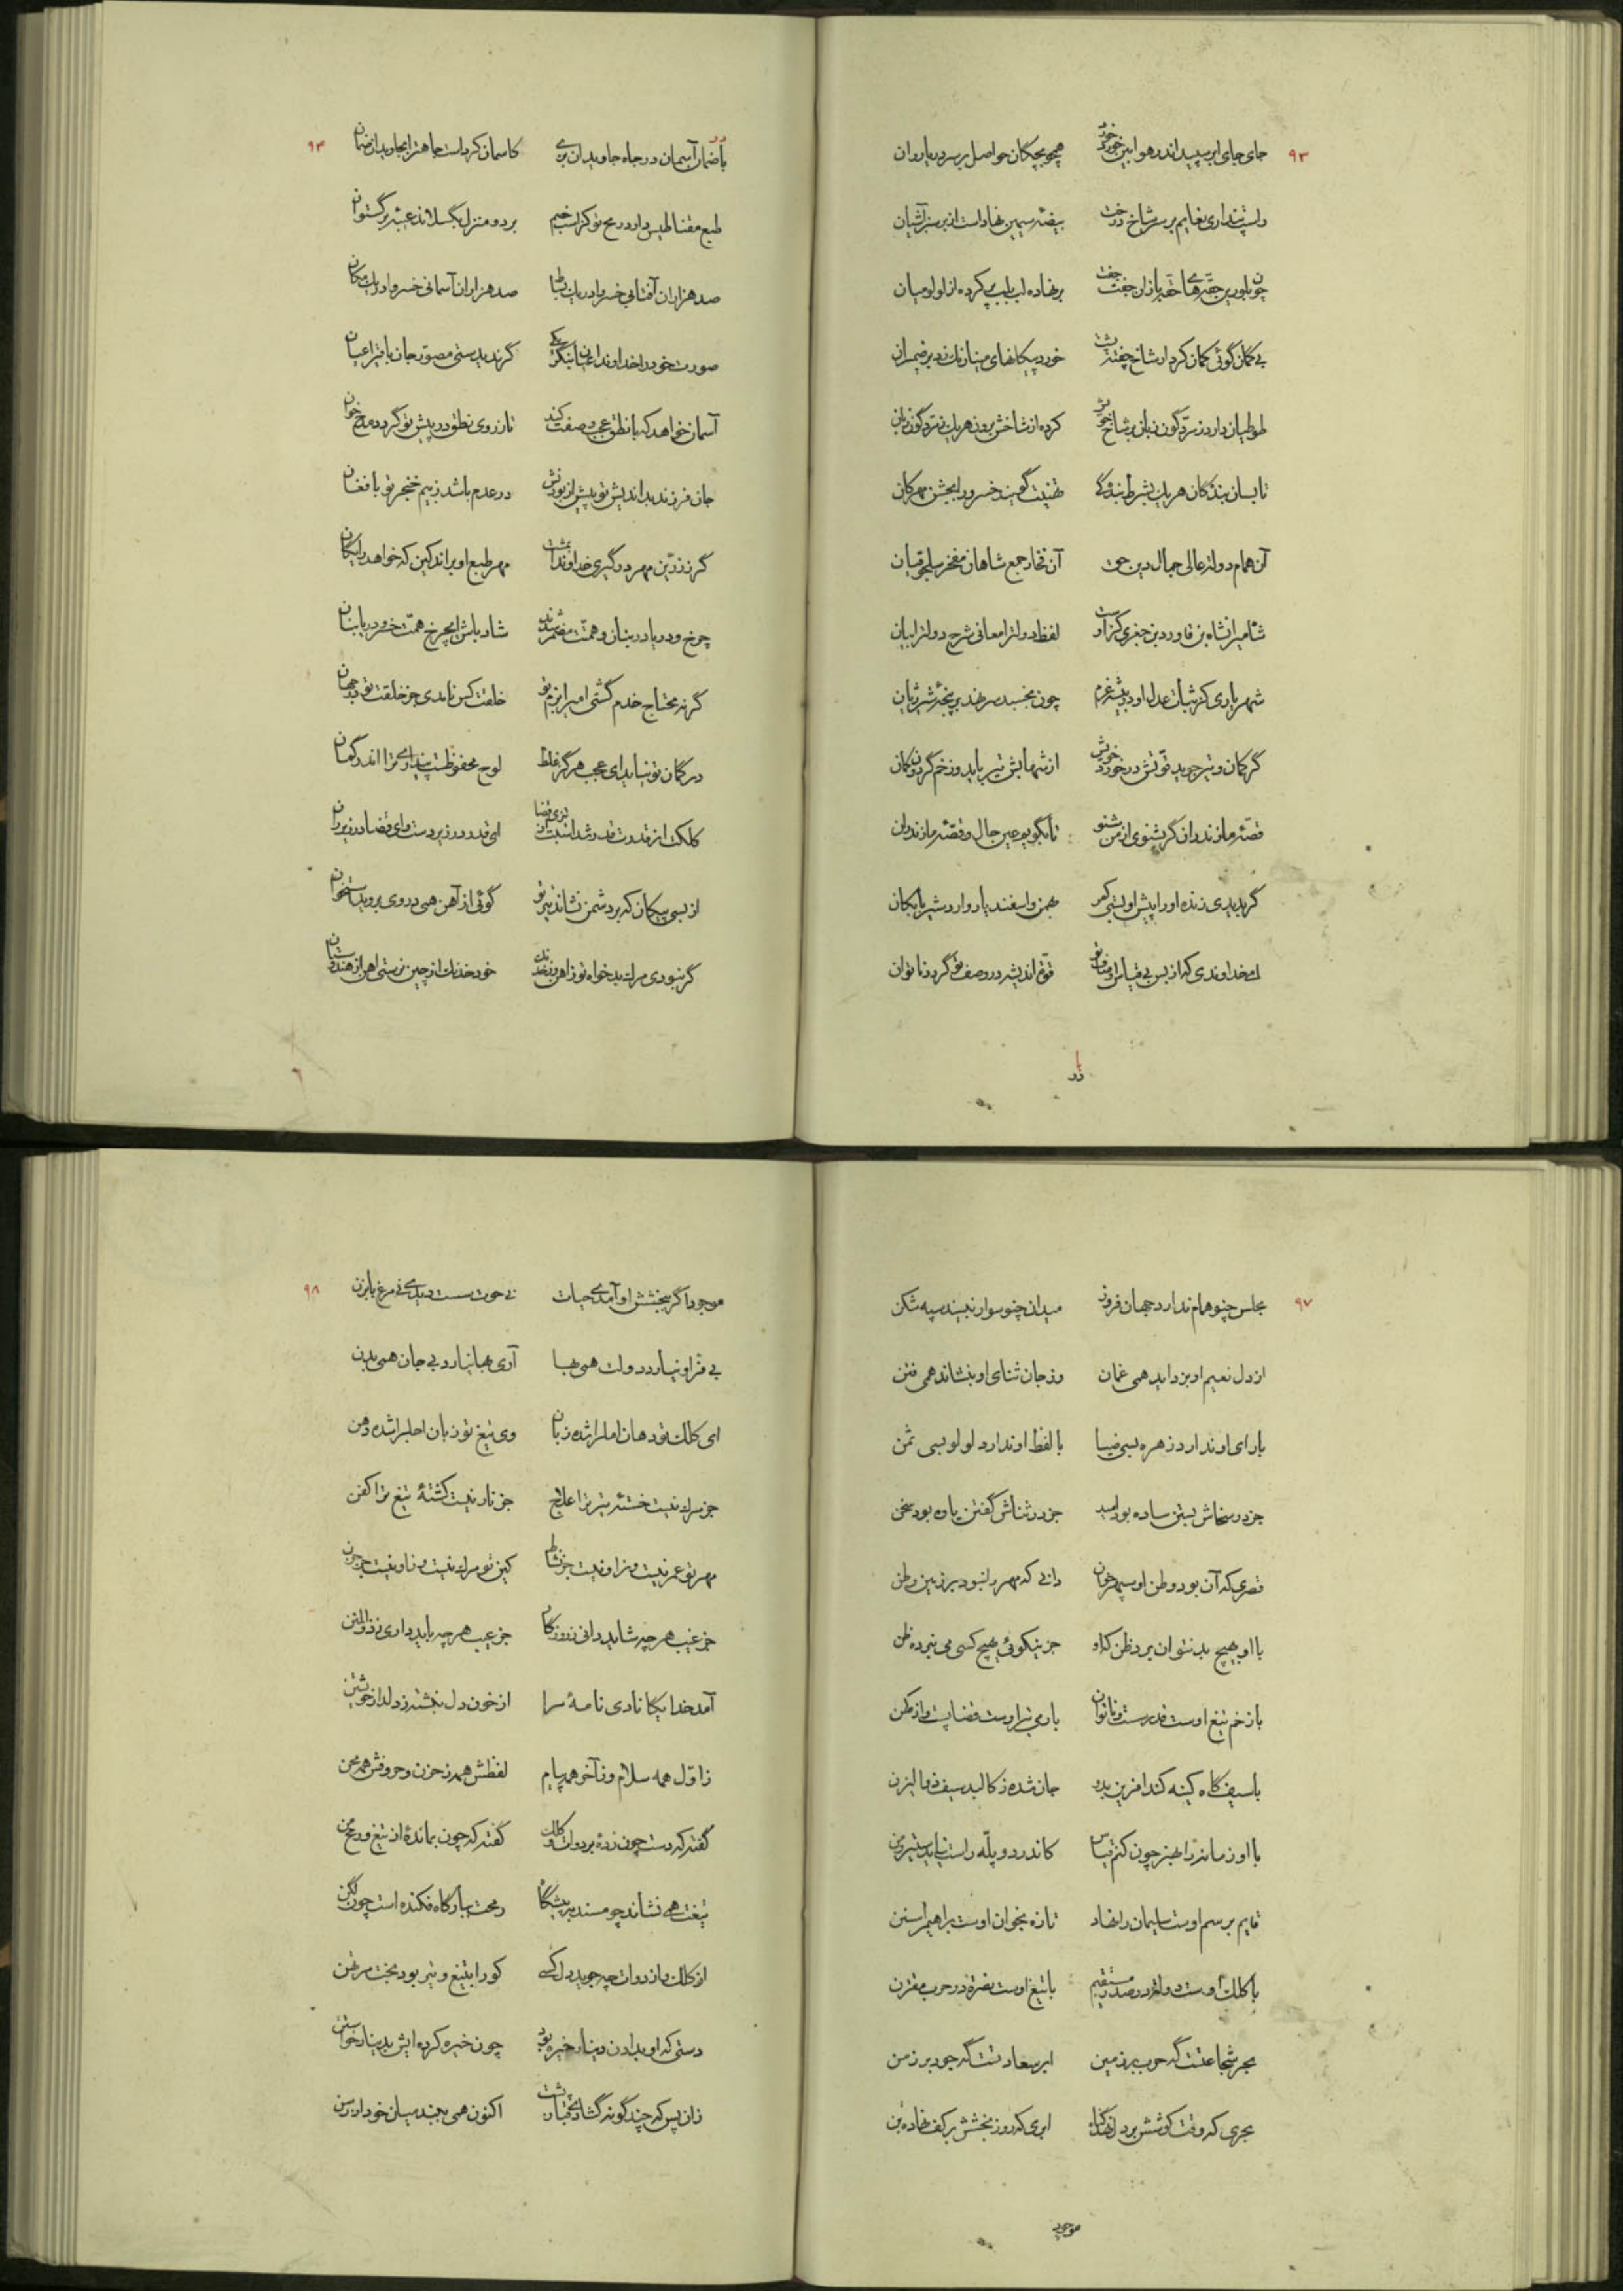 ۹۳
جای جای ابر سپید اندر هوا بین خرد خرد همچو بچگان حواصل بر سر دریا روان
راست پنداری نعایم بر سر شاخ درخت بیضه سیمین نهاد است از بر سبز آشیان
چون بلورین حقه های حقه باز ان جفت جفت بر نهاده لب بلب پر کرده از لولو میان
بی گمان گوئی کمان کردار شاخ چفته خورد پیکانهای مینا رنگ زد بر ضیمران
طوطیان دارد زمرد گون زبان بر شاخ خویش کرده از شاخش برون هر یک زمرد گون زبان
تا بسان بندگان هر یک بشرط بندگی تهنیت گویند خسرو را بجشن مهرکان
آن همام دولت عالی جمال دین حق آن فخار جمع شاهان مفخر سلجوقیان
شه امیرانشاه بن قاورد بن جغری کز اوست لفظ دولت را معانی شرح دولت را بیان
شهریاری کز ثبات عدل او در بیشه غرم چون بخسبد سر نهد بر پنجه شیر ژیان
گر کمان و تیر جوید قوتش در خورد خویش از شهابش تیر باید وز خم گردون کمان
قصه مازندران گر بشنوی از من شنو تا بگویم عین حال و قصه مازندران
گر بدیدی زنده او را پیش او بستی کمر بهمن و اسفندیار و اردشیر بابکان
ای خداوندی که از بس بی قیاس اوصاف تو قوت اندیشه در وصف تو گردد ناتوان
با ضمان
۹۴
با ضمان آسمان در جاه جاویدان بزی کاسمان کرد است جاهت را بجاویدان ضمان
طبع مقناطیس دارد رمح تو کز اسب خصم بر دو منزل بگسلاند غیبه برگستوان
صد هزاران آفتابی خسروا در یک بساط صد هزاران آسمانی خسروا در یک مکان
صورت خود را خداوندا عیان بنگر یکی گر ندیدستی مصور جان بافتر اعیان
آسمان خواهد که با نطق عجب وصفت کند تا ز روی نطق در پیش تو گردد مدح خوان
جان فرزند بد اندیش تو پیش از بودنش در عدم باشد ز بیم خنجر تو با فغان
گر نه زرین مهر بر گیری خداوندا بمشت مهر طبع او براند کین که خواهد رایگان
چرخ و دریا در بنان و همت مضمر شدند شاد باش ای چرخ همت خسرو دریا بنان
گر نه محتاج خدم گشتی امیرا بزم تو خلقت کس نامدی جز خلقت تو در جهان
در گمان تو نیاید ای عجب هرگز غلط لوح محفوظست پنداری ترا اندر گمان
کلکت از قدرت قدر شد اسبت از تیزی قضا ای قدر در زیر دست وای قضا در زیر ران
از بسی پیکان که بر دشمن نشاند تیر تو گوئی از آهن همی در وی بروید استخوان
گر نبودی مرگ بدخواه تو ز آهن وز خدنگ خود خدنگ از چین نرستی آهن از هندوستان
۹۷
مجلس چنو همام ندارد جهان فروز میدان چنو سوار نبیند سپه شکن
از دل نعیم او بزداید همی غمان وز جان ثنای او بنشاند همی فتن
با رای او ندارد زهره بسی ضیا با لفظ او ندارد لولو بسی ثمن
جز در سخاش بستن ساده بود امید جز در ثناش گفتن یاوه بود سخن
قصری که آن بود وطن او سپهر خوان دانی که مهر را نبود بر زمین وطن
با او بهیچ بد نتوان برد ظن که او جز نیکوئی بهیچ کسی می نبرده ظن
با زخم تیغ اوست قدر سست و ناتوان با رمی تیر اوست قضا پست و ممتحن
با سیف گاه کینه کند آفرین بدو جان شده ز کالبد سیف ذو الیزن
با او زمانه را بهنر چون کنم قیاس کاندر دو پله راست نیاید ستیر و من
قایم برسم اوست سلیمان را نهاد تازه بخوان اوست براهیم را سنن
با کلک اوست دولت در صدر مستقیم با تیغ اوست نصرت در حرب مقترن
بحر شجاعتست گه حرب بر زمین ابر سعادتست گه جود بر زمن
بحری که وقت کوشش بر دل نهد گناه ابری که روز بخشش بر کف نهاده تن
موجود
۹۸
موجود اگر ببخشش او آمدی حیات نی حوت سست دیدی نی مرغ بابزن
بی فر او نیارد دولت همی بها آری بها نیارد بی جان همی بدن
ای کلک تو دهان امل را شده زبان وی تیغ تو زبان اجل را شده دهن
جز مرگ نیست خسته تیر ترا علاج جز نار نیست کشته تیغ ترا کفن
مهر تو عمر نیست وز او نیست جز نشاط کین تو مرگ نیست وز او نیست جز حزن
جز غیب هر چه شاید دانی ز روزگار جز عیب هر چه باید داری ز ذوالمنن
آمد خدایگانا دی نامه سرا از خون دل نبشته ز دلدار خویشتن
ز اول همه سلام وز آخر همه پیام لفظش همه ز حزن و حروفش همه محن
گفته که دست چون زده بر دوات و کلک گفته که چون بمانده از تیغ و رمح من
تیغت همی نشاند چو مسند به پیشگاه رمحت ببارگاه فکنده است چون لگن
از کلک وز دوات چه جوید دل کسی کو را بتیغ و تیر بود بخت مرتهن
دستی که او بدادن دینار خیره بود چون خیره کرده ایش بدینار خواستن
زان پس که چند گونه گشاد بختیار پشت اکنون همی ببند میان خود از رسن